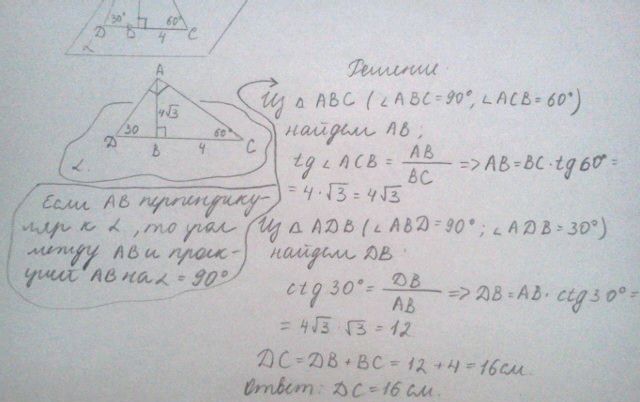 30° 60°
D B 4 C
α
A
4√3
D 30 60° C
B 4
α.
Если АВ перпендику-
ляр к α, то угол
между АВ и проек-
цией АВ на α = 90°
Решение
Из △ ABC (∠ABC=90°, ∠ACB=60°)
найдем AB;
tg ∠ ACB = AB/BC => AB=BC·tg60°=
= 4·√3 = 4√3
Из △ ADB (∠ABD=90°; ∠ADB=30°)
найдем DB.
ctg 30° = DB/AB => DB=AB·ctg30°=
= 4√3 · √3 = 12
DC = DB + BC = 12 + 4 = 16см.
Ответ: DC = 16 см.